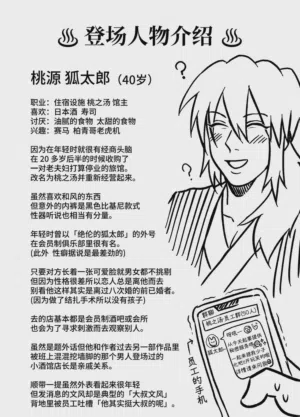 ♨ 登场人物介绍 ♨
桃源 狐太郎（40岁）
职业：住宿设施 桃之汤 馆主
喜欢：日本酒 寿司
讨厌：油腻的食物 太甜的食物
兴趣：赛马 柏青哥老虎机
因为在年轻时就很有经商头脑
在 20 多岁后半的时候收购了
一对老夫妇打算停业的旅馆。
改名为桃之汤并重新经营起来。
虽然喜欢和风的东西
但意外的内裤是黑色比基尼款式
性器听说也相当有分量。
年轻时曾以「绝伦的狐太郎」的外号
在会员制俱乐部里很有名。
(此外 性癖据说是最差劲的)
只要对方长着一张可爱脸就男女都不挑剔
但因为性格很差所以恋人总是离他而去
别看他这样其实是离过八次婚的前已婚者。
(因为做了结扎手术所以没有孩子)
去的店基本都是会员制酒吧或会所
也会为了寻求刺激而去观察别人。
虽然是题外话但他和作者过去另一部作品里
被班上混混挖墙脚的那个男人登场过的
小酒馆店长是亲戚关系。
顺带一提虽然外表看起来很年轻
但发消息的文风却是典型的「大叔文风」
背地里被员工吐槽「他其实挺大叔的呢」。
？
？
群聊
桃之汤员工群(50人)
狐太郎
员工的手机